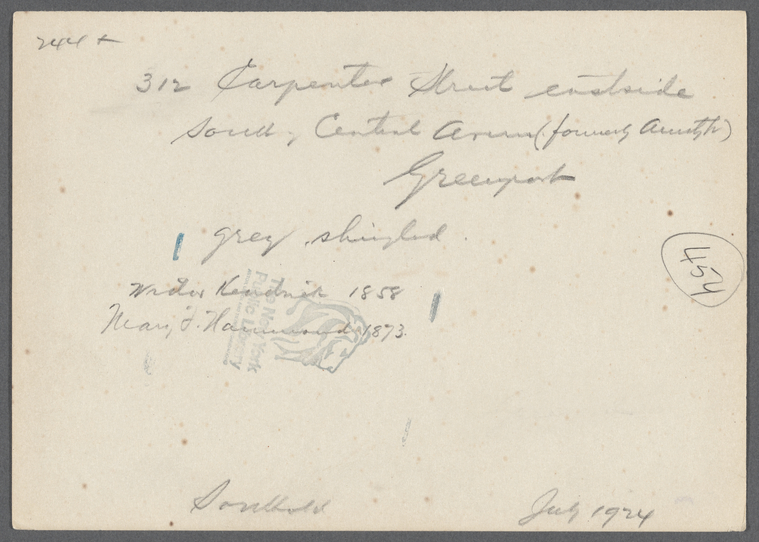 244 +
312 Carpenter Street eastside
South of Central Avenue (formerly Amity St)
Greenport
grey shingled
454
Widow Kendrick 1858
Mary F. Hammond 1873.
The New York
Public Library
Southold
July 1924